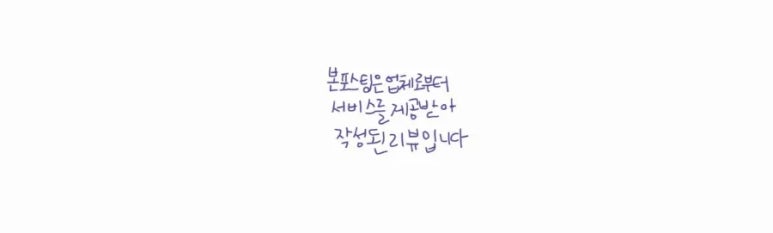 본포스팅은 업체로부터
서비스를 제공받아
작성된 리뷰입니다